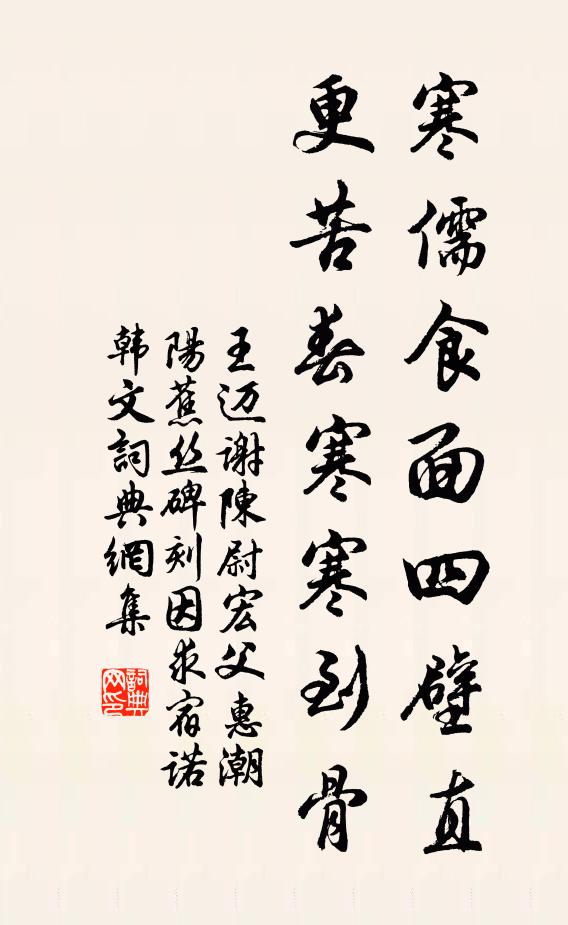 寒儒食面四壁直
更苦春寒寒到骨
王迈谢陳尉宏父惠潮
陽蕉丝碑刻因求宿诺
韩文詞典網集
詞典
网印